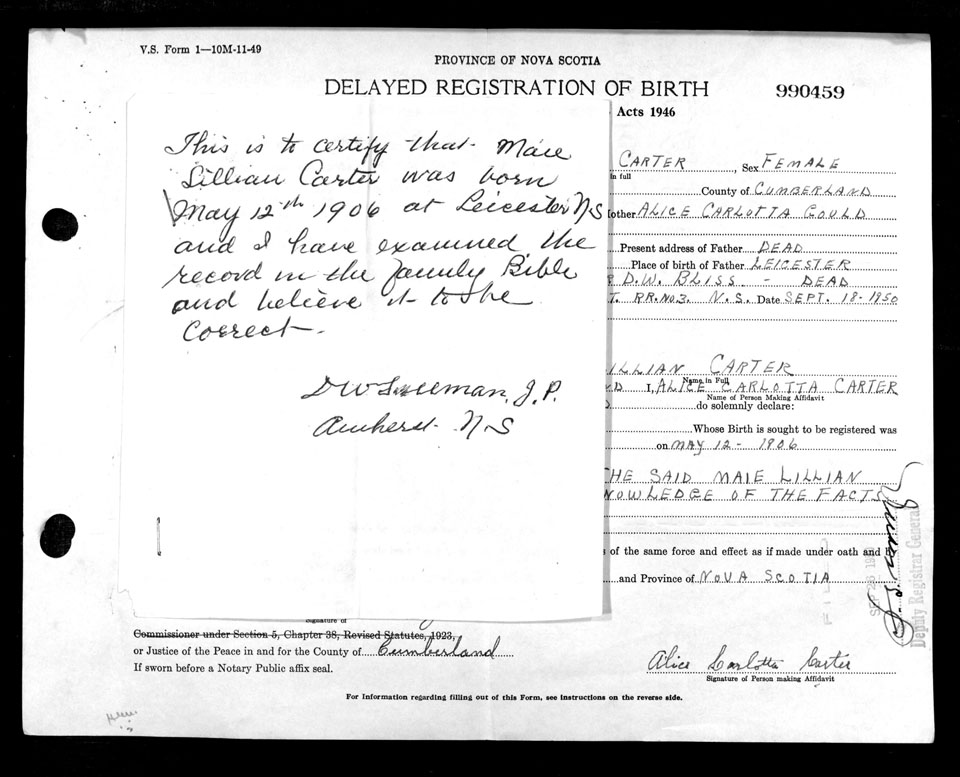 V.S. Form 1—10M-11-49
PROVINCE OF NOVA SCOTIA
DELAYED REGISTRATION OF BIRTH
990459
Acts 1946
This is to certify that Maie
Lillian Carter was born
May 12th 1906 at Leicester N.S
and I have examined the
record in the family Bible
and believe it to be
correct.
J.P.
Amherst N S
CARTER, Sex FEMALE
in full
County of CUMBERLAND
other ALICE CARLOTTA GOULD
Present address of Father DEAD
Place of birth of Father LEICESTER
D.W. BLISS - DEAD
RR. NO 3. N.S. Date SEPT. 18-1950
ILLIAN CARTER
Name in Full
I, ALICE CARLOTTA CARTER
Name of Person Making Affidavit
do solemnly declare:
Whose Birth is sought to be registered was
on MAY 12 - 1906
HE SAID MAIE LILLIAN
NOWLEDGE OF THE FACTS
of the same force and effect as if made under oath and
and Province of NOVA SCOTIA
Deputy Registrar General
Signature of
Commissioner under Section 5, Chapter 38, Revised Statutes, 1923,
or Justice of the Peace in and for the County of Cumberland
If sworn before a Notary Public affix seal.
Alice Carlotta Carter
Signature of Person making Affidavit
For Information regarding filling out of this Form, see instructions on the reverse side.